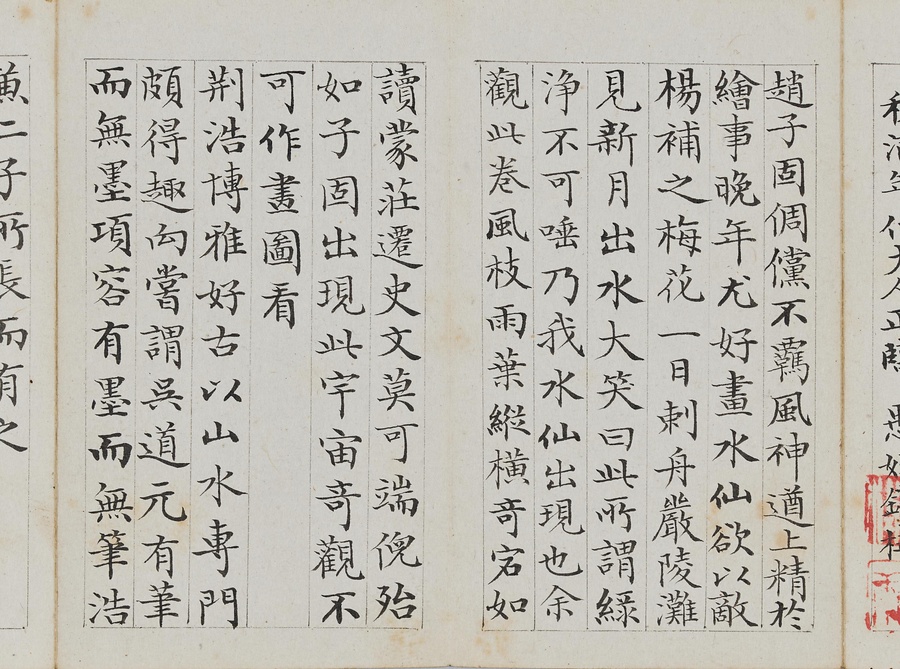 趙子固倜儻不羈風神遒上精於
繪事晚年尤好畫水仙欲以敵
楊補之梅花一日刺舟嚴陵灘
見新月出水大笑曰此所謂綠
淨不可唾乃我水仙出現也余
觀此卷風枝雨葉縱橫奇宕如
讀蒙莊遷史文莫可端倪殆
如子固出現此宇宙奇觀不
可作畫圖看
荆浩博雅好古以山水專門
頗得趣向嘗謂吳道元有筆
而無墨項容有墨而無筆浩
兼二子所長而有之